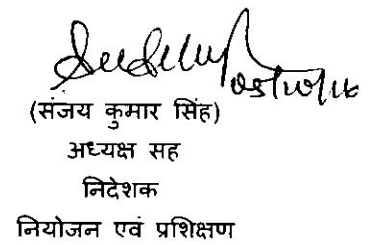 05/10/16
(संजय कुमार सिंह)
अध्यक्ष सह
निदेशक
नियोजन एवं प्रशिक्षण